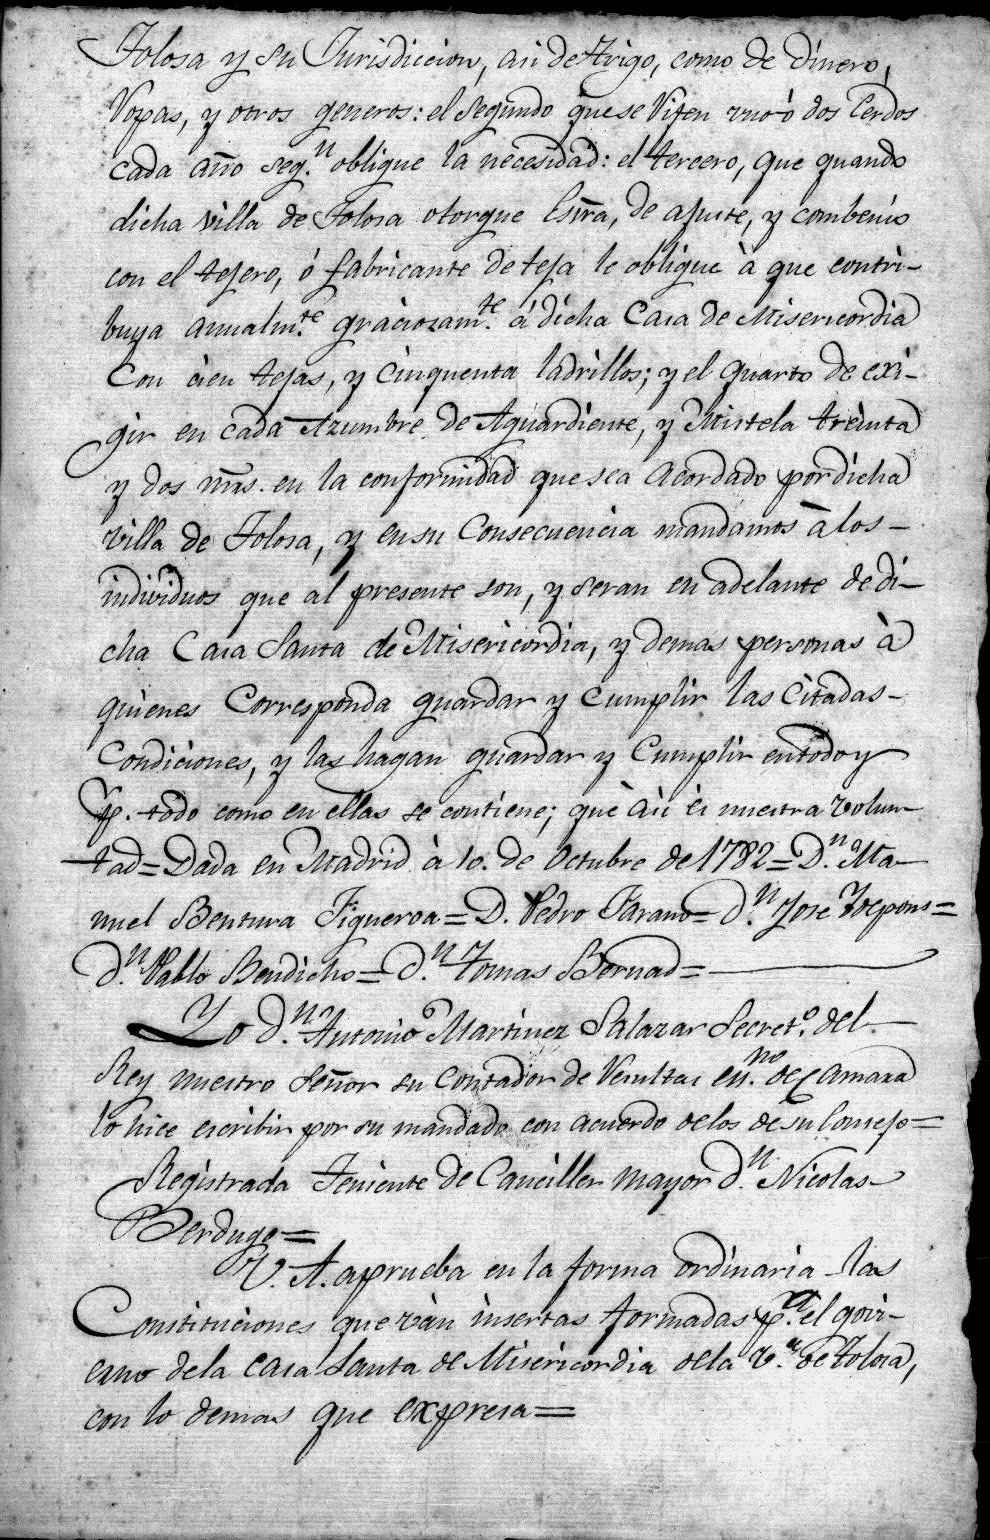 Tolosa y su Jurisdiccion, asi de trigo, como de dinero,
Ropas, y otros generos: el segundo que se Rifen uno ò dos Cerdos
cada año seg.n oblique la necesidad: el tercero, que quando
dicha villa de Tolosa otorgue Esrra, de ajuste, y combenio
con el tejero, ó fabricante de teja le oblique à que contri-
buya anualm.te graciozam.te á dicha Casa de Misericordia
Con cien tejas, y Cinquenta ladrillos; y el quarto de exi-
gir en cada Azumbre de Aguardiente, y Mistela treinta
y dos mrs. en la conformidad que sea acordado por dicha
villa de Tolosa, y en su Consecuencia mandamos à los-
individuos que al presente son, y seran en adelante de di-
cha Casa Santa de Misericordia, y demas personas à
quienes Corresponda guardar y cumplir las Citadas-
Condiciones, y las hagan guardar y Cumplir entodo y
p. todo como en ellas se contiene; que asi es nuestra volun-
tad= Dada en Madrid à 10. de Octubre de 1782= D.n Ma-
nuel Bentura Figueroa= D. Pedro Tarano= d.n Jose
d.n Pablo Bendicho= d.n Tomas Bernad=
Yo d.n Antonio Martinez Salazar Secret.o del-
Rey nuestro Señor su Contador de Resultas es.no de Camara
lo hice escribir por su mandado con acuerdo de los de su Consejo=
Registrada Teniente de Canciller mayor d.n Nicolas-
Berdugo=
V. A. aprueba en la forma ordinaria las
Constituciones que ván insertas formadas p.a el govi-
erno dela Casa Santa de Misericordia dela v.a de Tolosa,
con lo demas que expresa=